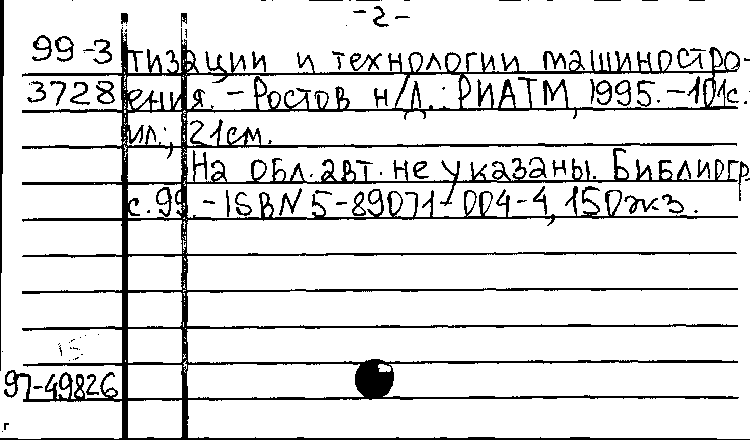 -2-
99-3 тизации и технологии машиностро-
3728 ения. - Ростов н/Д.: РИАТМ, 1995. - 101с.:
ил.; 21см.
На обл. авт. не указаны. Библиогр.
с. 99. - ISBN 5-89071-004-4, 150экз.
15
97-49826